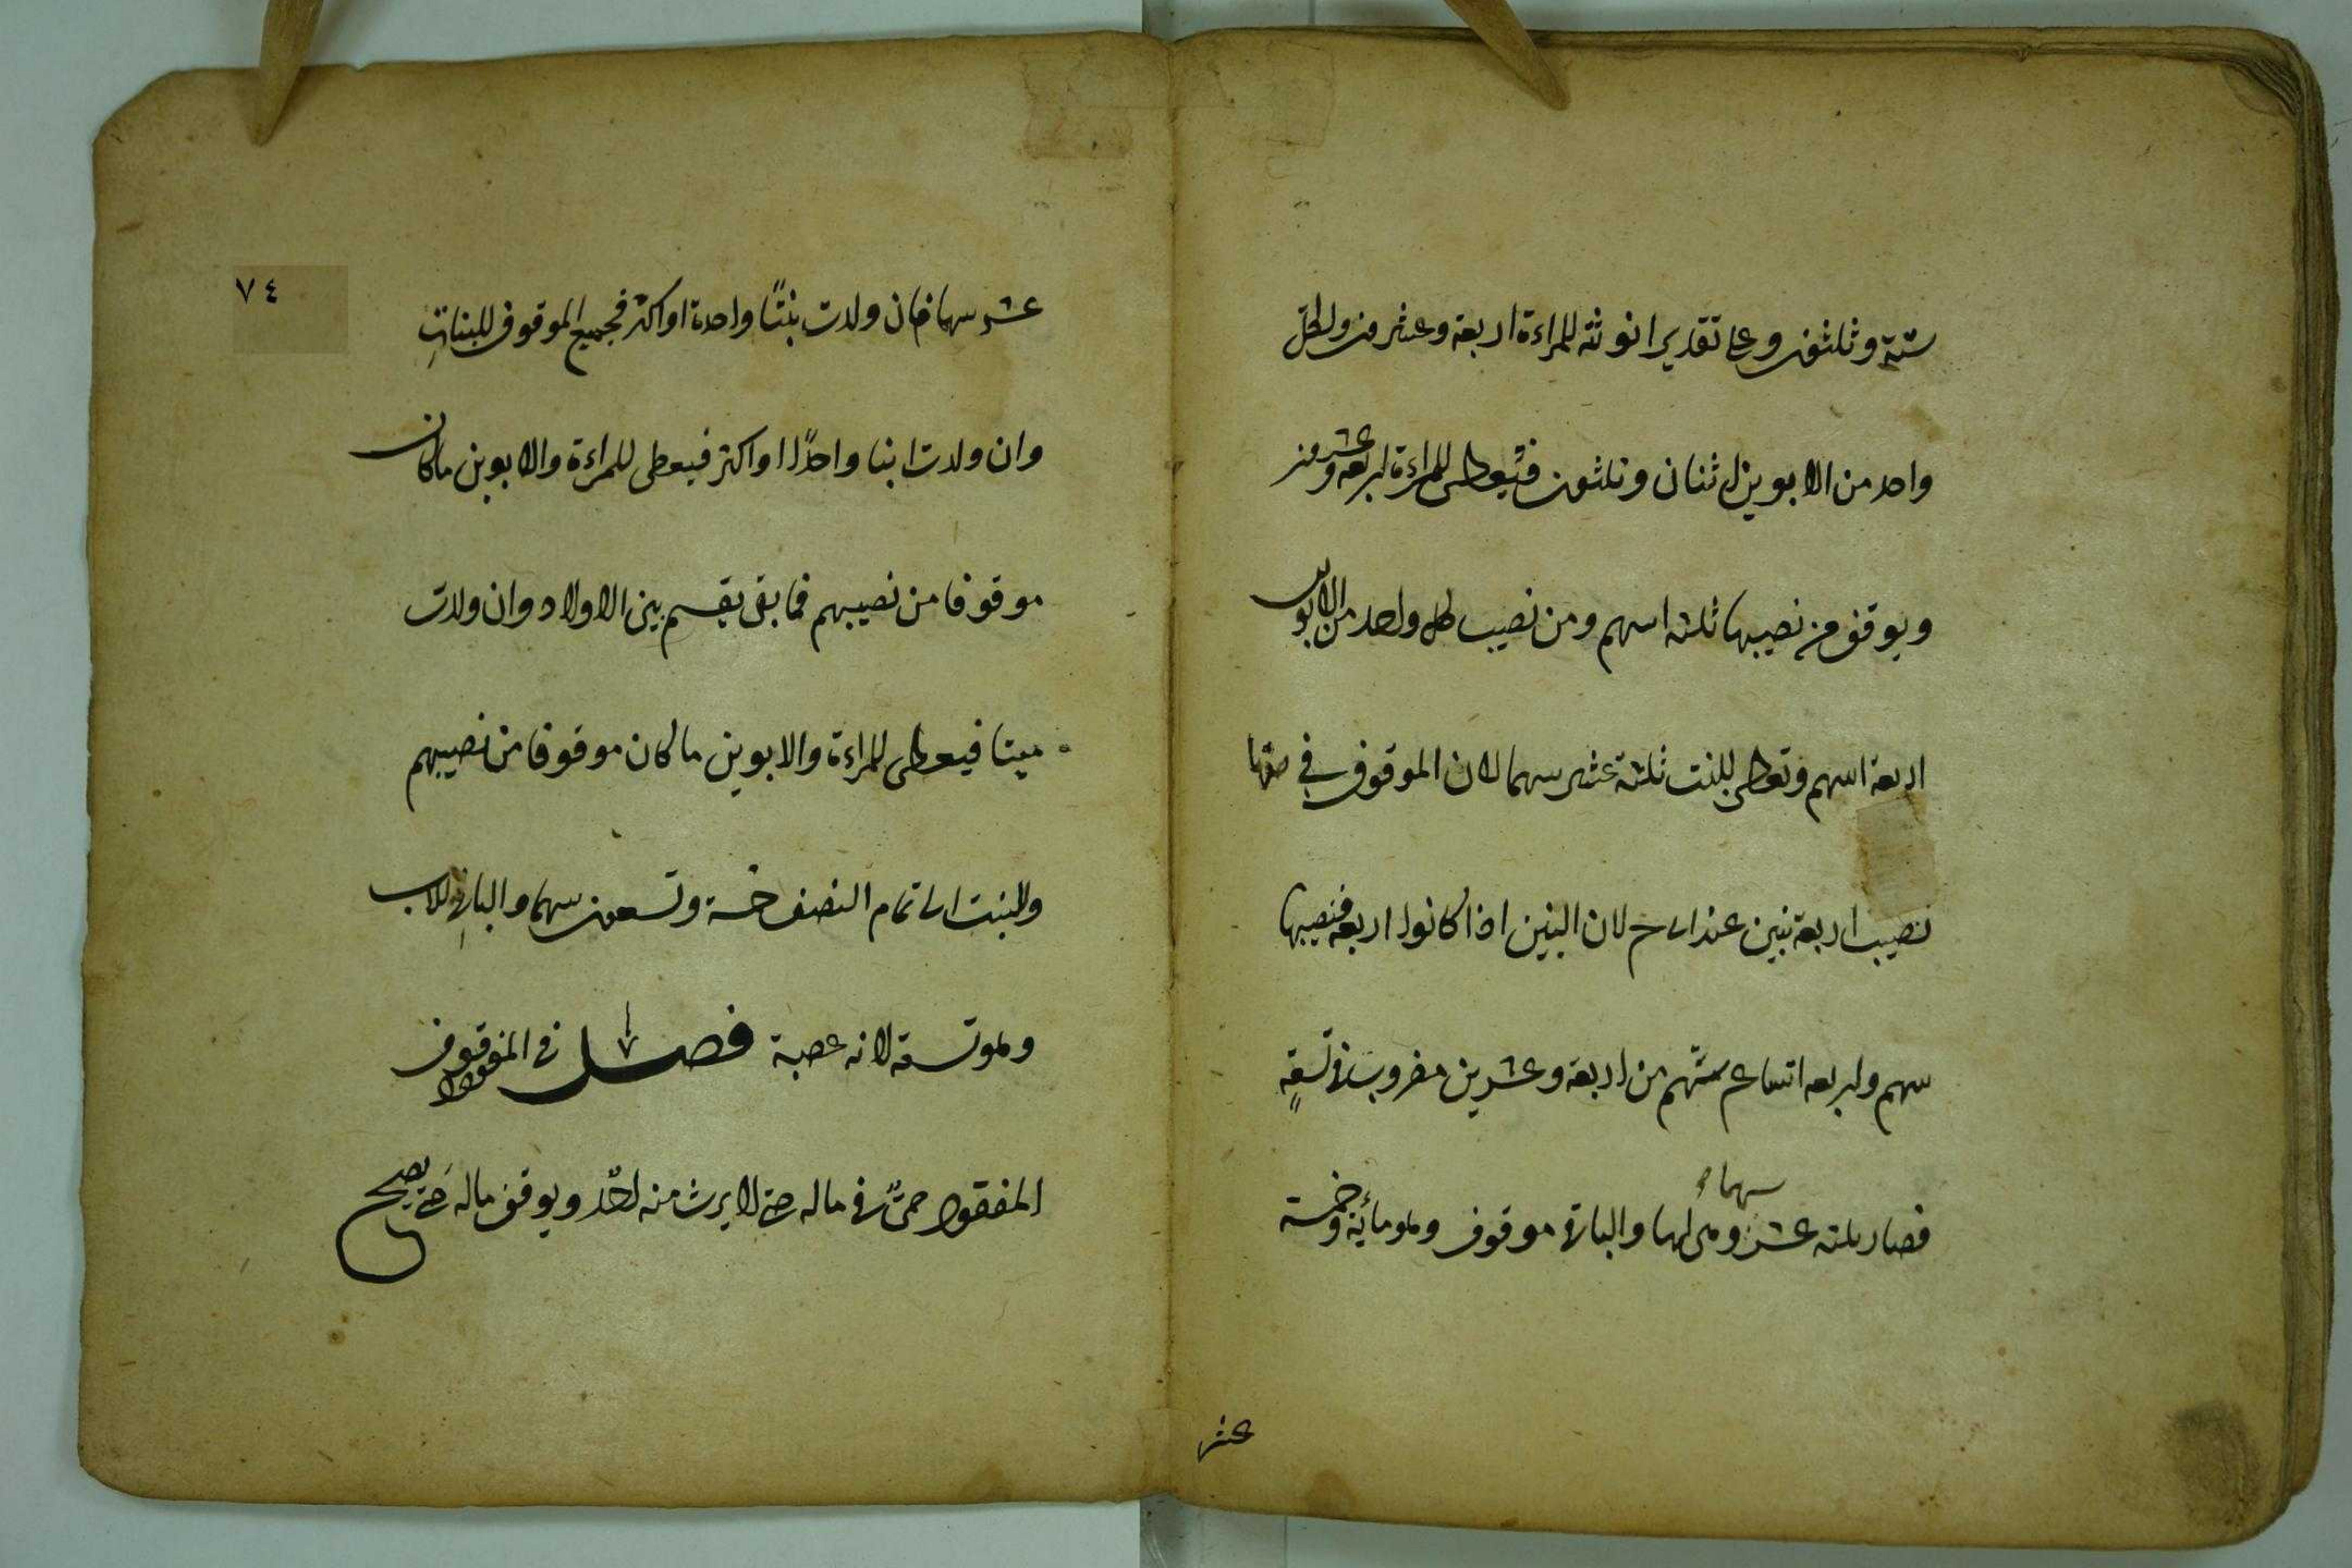 ستة وثلثون وعلى تقدير انوثته للمراءة اربعة وعشرون ولكل
واحد من الابوين اثنان وثلثون فتعطى للمراءة اربعة وعشرون
ويوقف من نصيبها ثلثه اسهم ومن نصيب كل واحد من الابوين
اربعة اسهم وتعطى للبنت ثلثة عشر سهما لان الموقوف في حقها
نصيب اربعة بنين عند ابى ح لان البنين اذا كانوا اربعة فنصيبها
سهم واربعه اتساع سهم من اربعة وعشرين مضروب فى تسعةٍ
فصار ثلثه عشر سهما وهى لها والباقى موقوف وهو مائة وخمسة
عشر
٧٤
عشر سهما فان ولدت بنتًا واحدة او اكثر فجميع الموقوف للبناتِ
وان ولدت ابنا واحدًا او اكثر فيعطى للمراءة والابوين ما كان
موقوفا من نصيبهم فما بقى يقسم بين الاولاد وان ولدت
ميتا فيعطى للمراءة والابوين ما كان موقوفا من نصيبهم
وللبنت الى تمام النصف خمسة وتسعون سهما والباقى للاب
وهو تسعة لانه عصبة فصل فى المفقود
المفقود حىٌّ فى ماله حتى لا يرث منه احدٌ ويوقف ماله حتى يصح